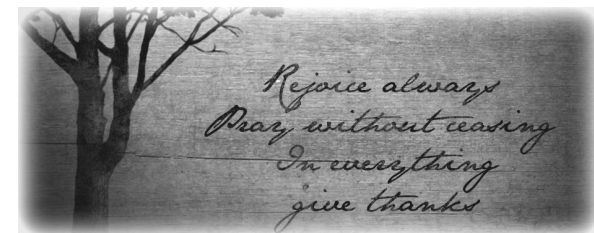 Rejoice always
Pray without ceasing
In everything
give thanks